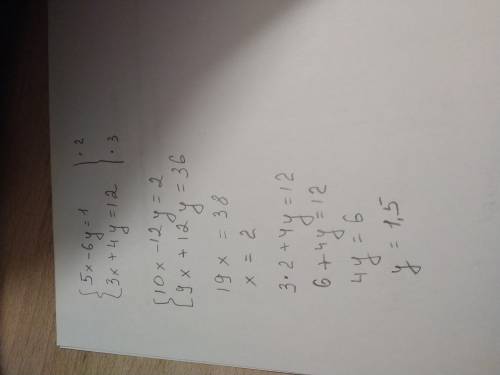 {5x-6y=1 } · 2
{3x+4y=12 } · 3
{10x-12y=2
{9x+12y=36
19x=38
x=2
3·2+4y=12
6+4y=12
4y=6
y=1,5